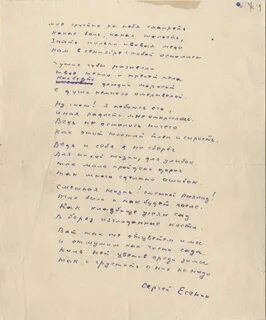 Мне грустно на тебя смотреть
Какая боль, какая жалость!
Знать только ивовая медь
Нам в сентябре с тобой осталась

Чужие губы разнесли
Твое тепло и трепет тела
Как будто дождик моросит
С души немного омертвелой.

Ну, что ж! Я не боюсь его!
Иная радость мне открылась.
Ведь не осталось ничего
Как только желтый тлен и сырость.

Ведь и себя я не сберег
Для тихой жизни, для улыбок
Так мало пройдено дорог
Так много сделано ошибок.

Смешная жизнь! Смешной разлад!
Так было и так будет после.
Как кладбище усеян сад
В берез изглоданные кости.

Вот так же отцветем и мы
И отшумим как гости сада.
Коль нет цветов среди зимы
Так и грустить о них не надо

Сергей Есенин